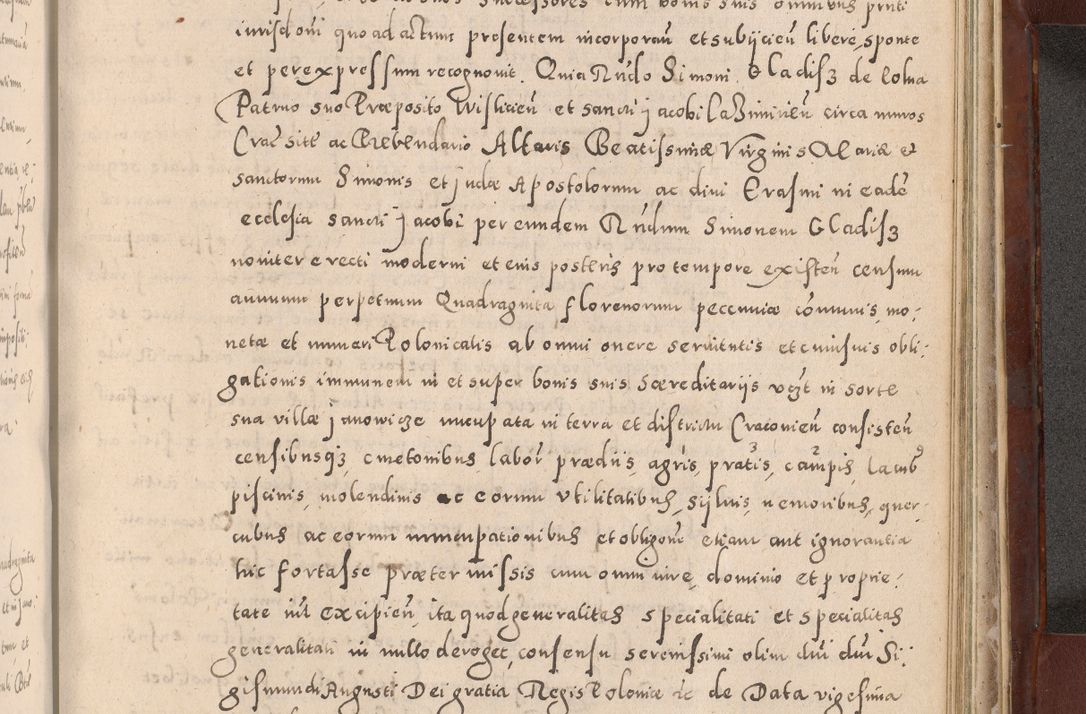 successores cum bonis suis omnibus pnti
iurisdoni quo ad actum presentem incorporan et subiicien libere, sponte
et per expressum recognovit. Quia Rndo Simoni Gladisz de Lolna
Patruo suo Præposito Wislicien et Sancti Jacobi Casimirien circa muros
Crac site ac Prebendario Altaris Beatissimæ Virginis Mariæ et
sanctorum Simonis et Judæ Apostolorum ac divi Erasmi in eade
ecclesia sancti Jacobi per eundem Rndum Simonem Gladisz
noviter erecti moderni et eius posteris pro tempore existen censum
annuum perpetuum Quadraginta florenorum pecuniæ comunis, mo,
netæ et numeri Polonicalis ab omni onere servitutis et cuiusvis obli,
gationis immunem in et super bonis suis hæreditariis vczt in sorte
sua villæ Janowicze nuncupata in terra et districtu Cracovien consisten
censibusqz, cmetonibus, labor prædiis, agris, pratis, campis, lacub
piscinis, molendinis ac eorum utilitatibus, sylvis, nemoribus, quer,
cubus ac eorum nuncupationibus et obligone etiam aut ignorantia
hic fortasse prætermissis cum omni iure, dominio et proprie,
tate nil excipien, ita quod generalitas specialitati et specialitas
generalitati in nullo deroget, consensu serenissimi olim dni dni Si,
gismundi Augusti Dei gratia Regis Poloniæ &c de Data vigesima